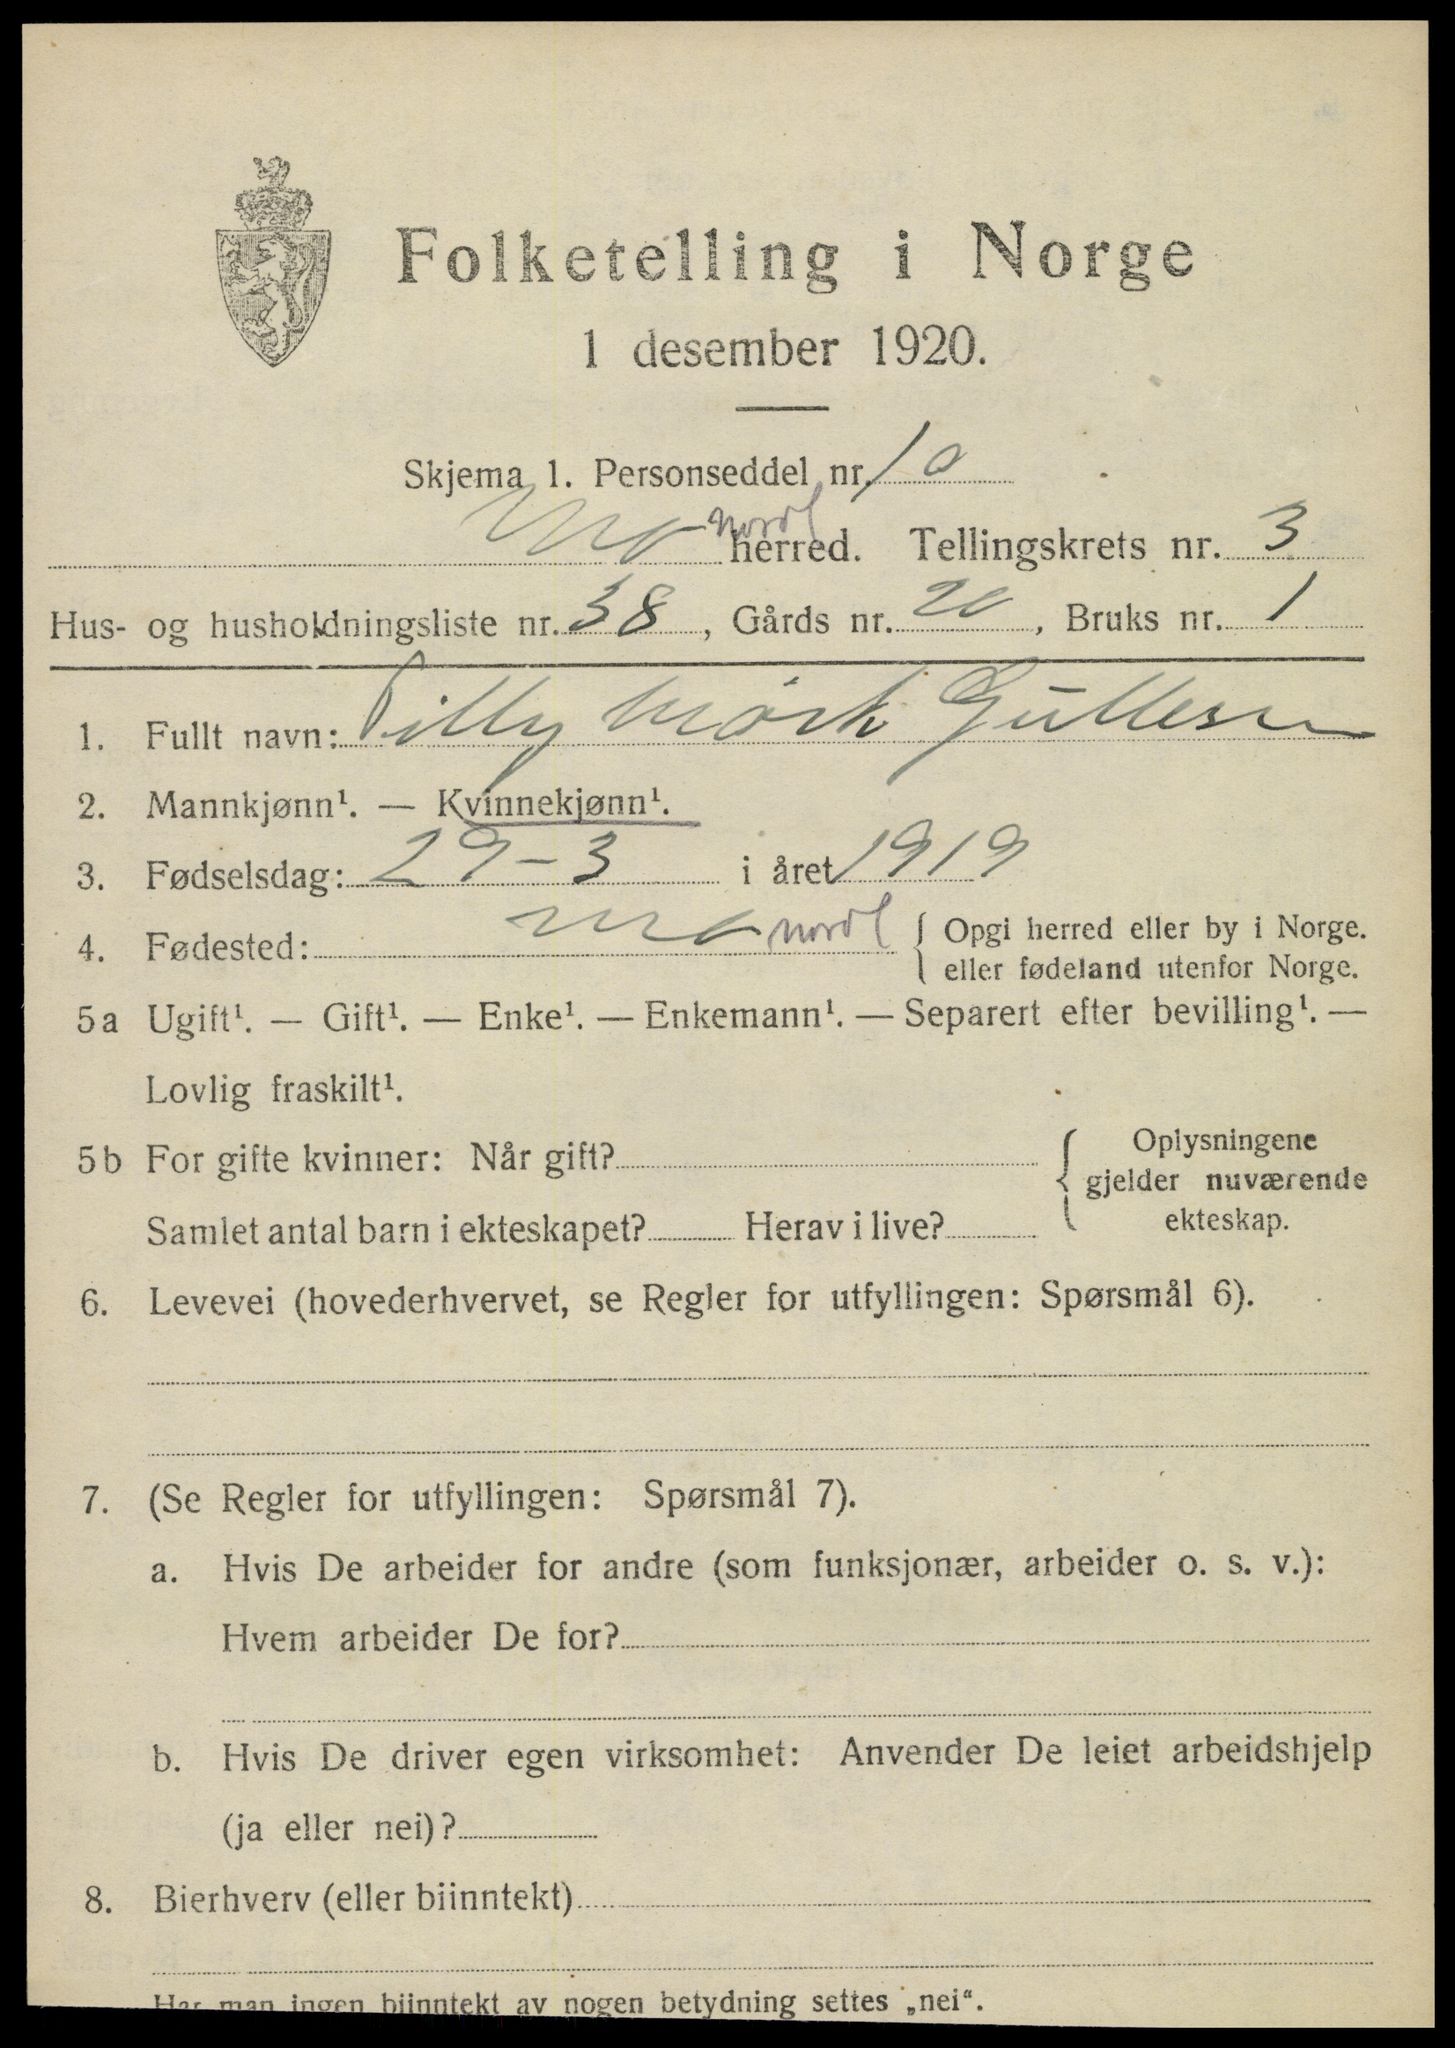 Folketelling i Norge
1 desember 1920.
Skjema 1. Personseddel nr. 10
Mo nordl herred. Tellingskrets nr. 3
Hus- og husholdningsliste nr. 38, Gårds nr. 20, Bruks nr. 1
1. Fullt navn: Tilly Mörk Gullesen
2. Mannkjønn¹. — Kvinnekjønn¹.
3. Fødselsdag: 29-3 i året 1919
4. Fødested: Mo nordl { Opgi herred eller by i Norge.
eller fødeland utenfor Norge.
5a Ugift¹. — Gift¹. — Enke¹. — Enkemann¹. — Separert efter bevilling¹. —
Lovlig fraskilt¹.
5b For gifte kvinner: Når gift? { Oplysningene
gjelder nuværende
Samlet antal barn i ekteskapet? Herav i live? ekteskap.
6. Levevei (hovederhvervet, se Regler for utfyllingen: Spørsmål 6).
7. (Se Regler for utfyllingen: Spørsmål 7).
a. Hvis De arbeider for andre (som funksjonær, arbeider o. s. v.):
Hvem arbeider De for?
b. Hvis De driver egen virksomhet: Anvender De leiet arbeidshjelp
(ja eller nei)?
8. Bierhverv (eller biinntekt)
Har man ingen biinntekt av nogen betydning settes „nei“.